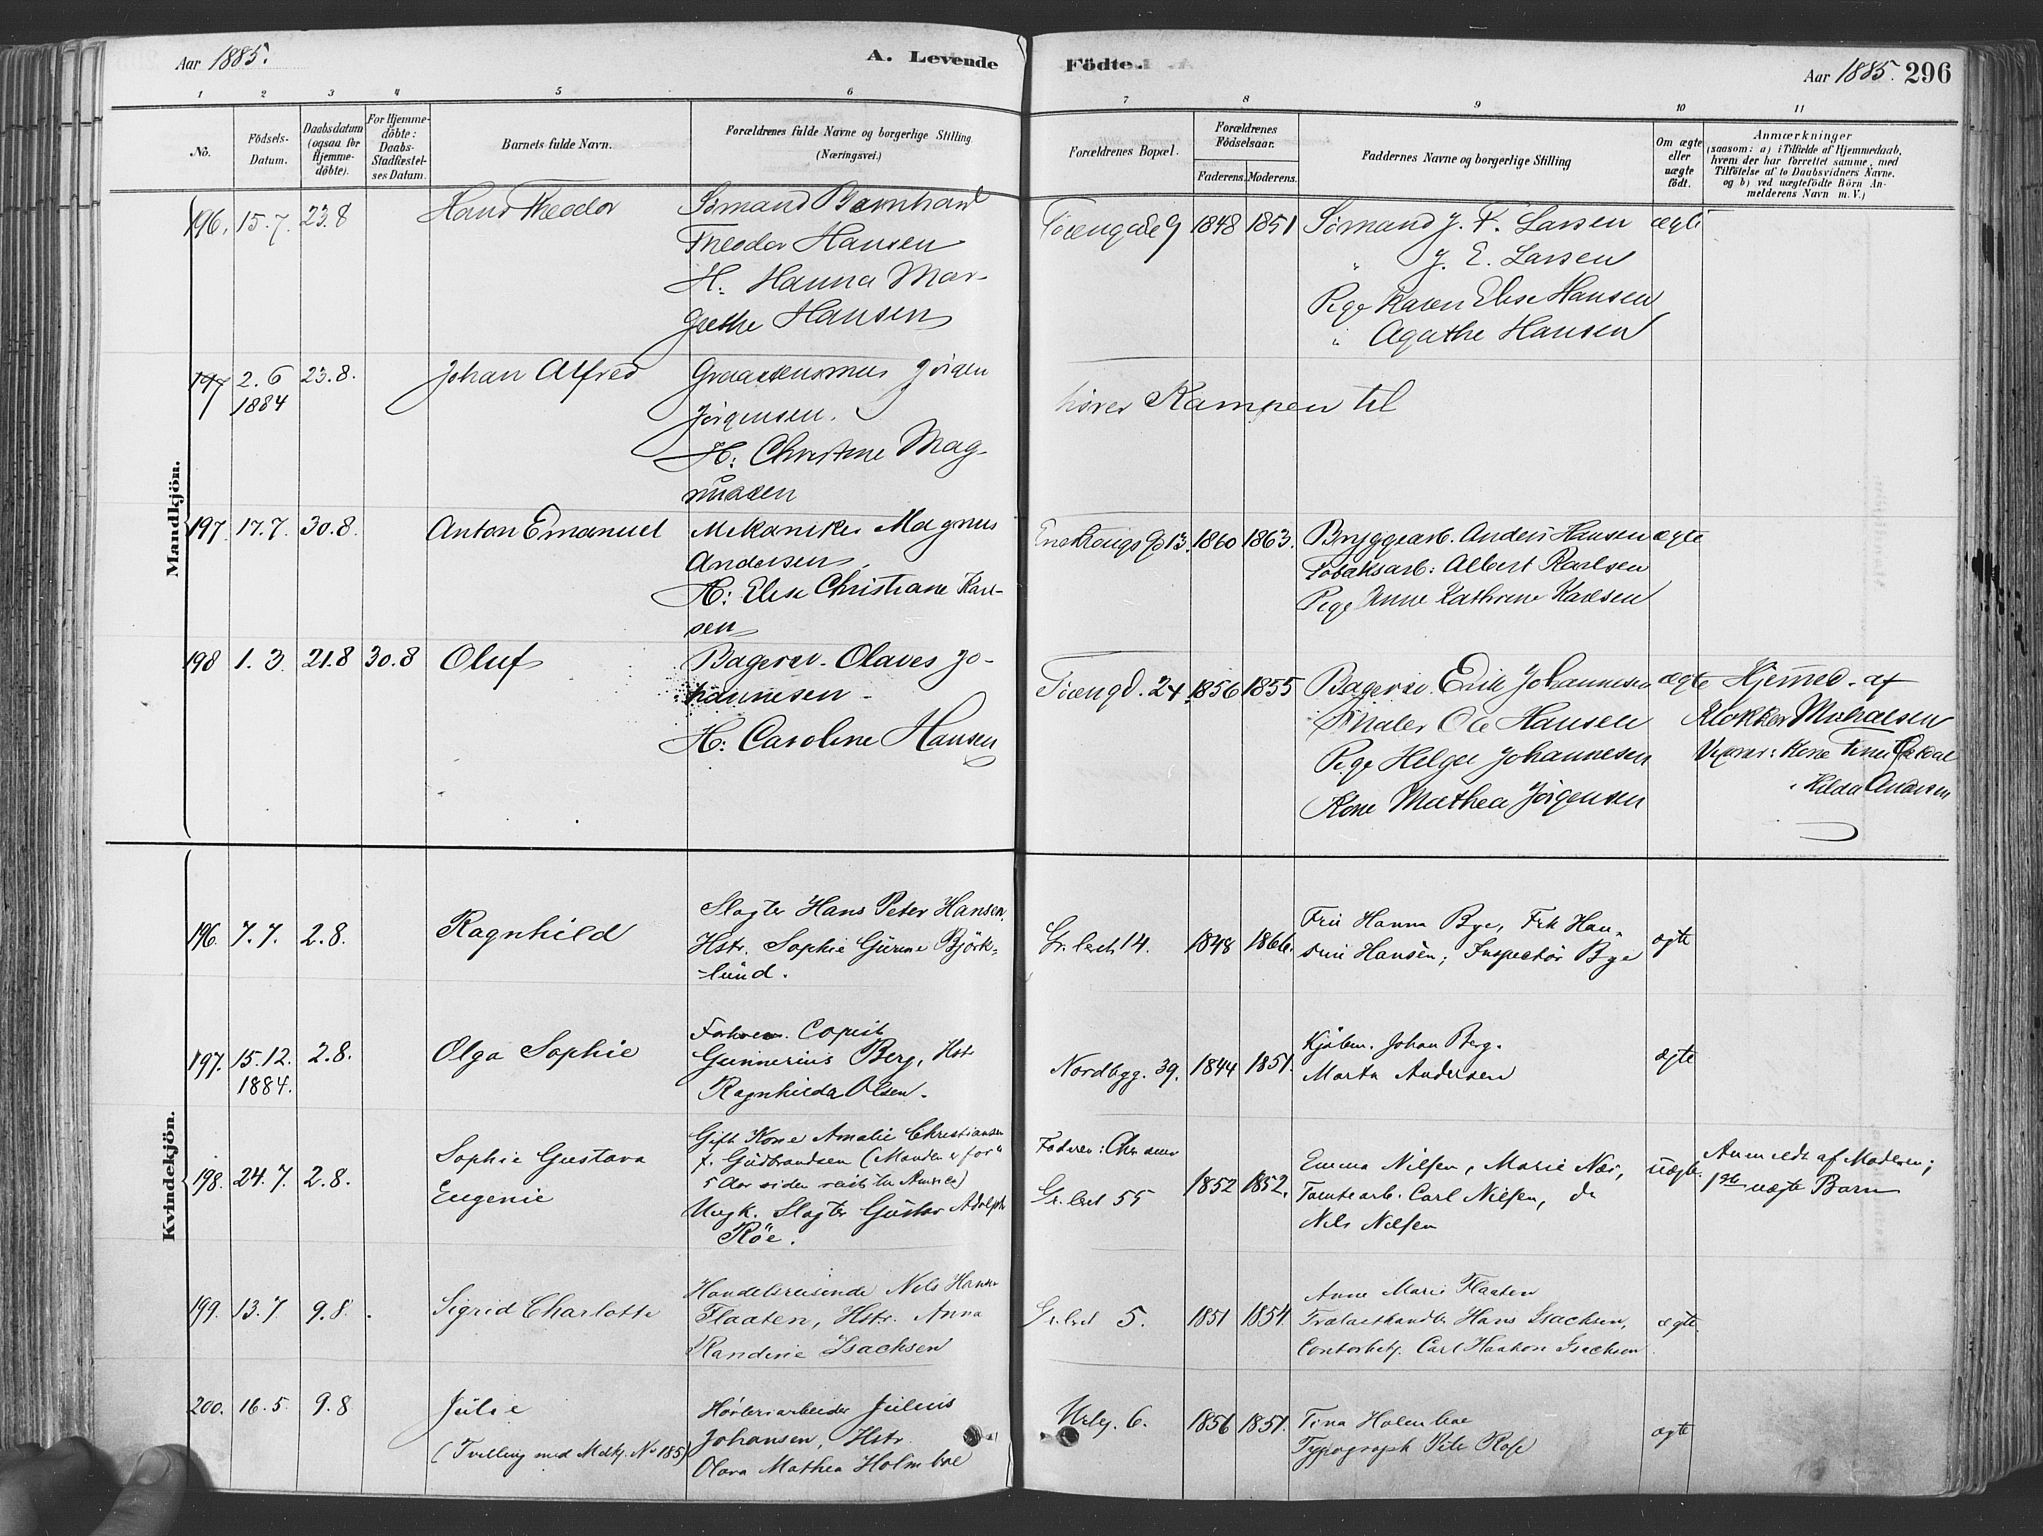 Aar 1885.
A. Levende
Födte.
Aar 1885. 296
1 2 3 4 5 6 7 8 9 10 11
No.
Födsels-
Datum.
Daabsdatum
(ogsaa for
Hjemme-
döbte).
For Hjemme-
döbte:
Daabs-
Stadfæstel-
ses Datum.
Barnets fulde Navn.
Forældrenes fulde Navne og borgerlige Stilling
(Næringsvei.)
Forældrenes Bopæl.
Forældrenes
Födselsaar.
Faderens. Moderens.
Faddernes Navne og borgerlige Stilling
Om ægte
eller
uægte
födt.
Anmærkninger
(saasom: a) i Tilfælde af Hjemmedaab,
hvem der har forrettet samme, med
Tilföielse af to Daabsvidners Navne,
og b) ved uægtefödte Börn An-
melderens Navn m. V.)
Mandkjön.
196. 15.7. 23.8 Hans Theodor
Sømand Bernhard
Theodor Hansen
H: Hanna Mar-
grethe Hansen
Töiengade 9 1848 1851
Sømand J. F. Larsen
" J. E. Larsen
Pige Karen Elise Hansen
" Agathe Hansen
ægte
197 2.6 1884 23.8. Johan Alfred
Jörgen
Jørgensen.
H: Christine Mag-
nussen
hører Kampen til
197. 17.7. 30.8. Anton Emanuel
Mekaniker Magnus
Andersen
H: Elise Christiane Karl-
sen
13. 1860 1863.
Bryggearb. Anders Hansen
Tobaksarb: Albert Karlsen
Pige Anne Kathrine Karlsen
ægte
198 1.3. 21.8 30.8 Oluf
Bagersv. Olaves Jo-
hannesen
H: Caroline Hansen
Töiengd. 24. 1856 1855
Bagersv. Erik Johannesen
Maler Ole Hansen
Pige Helga Johannesen
Kone Mathea Jörgensen
ægte
Hjemmed. af
Klokker Michalsen
Kone
Hilda Andersen
Kvindekjön.
196. 7.7. 2.8. Ragnhild
Slagter Hans Peter Hansen.
Hstr. Sophie Gunne Björk-
lund.
Gr.leret 14. 1848 1866.
Fru Hanna Bye, Frk Han-
sine Hansen; Inspectör Bye
ægte
197. 15.12. 1884. 2.8. Olga Sophie
Copist
Gunnerius Berg, Hstr
Ragnhilda Olsen.
Nordbyg. 39. 1844 1851.
Kjöbm. Johan Berg.
Marta Andersen
ægte
198. 24.7. 2.8. Sophie Gustava
Eugenie
Gift Kone Amalie Christiansen
f. Gudbrandsen (Manden for
5 Aar siden reist til America)
Ungk. Slagter Gustav Adolph
Röe.
Faderen:
Gr.leret 55 1852 1852.
Emma Nilsen, Marie Nær,
Tomtearb. Carl Nilsen, do
Nils Nilsen
uægte.
Anmeldt af Moderen;
1ste uægte Barn
199. 13.7. 9.8. Sigrid Charlotte
Handelsreisende Nils Hansen
Flaaten, Hstr. Anna
Randine Isachsen
Gr.leret 5. 1851 1854.
Anne Marie Flaaten
Trælasthandler Hans Isachsen,
Contorbetj. Carl Haakon Isachsen
ægte.
200. 16.5. 9.8 Julie
(Tvilling med Mdkj. No 185)
Julius
Johansen, Hstr.
Olava Mathea Holmboe
Urtg. 6. 1856 1851.
Tina Holmboe
Typograph
ægte